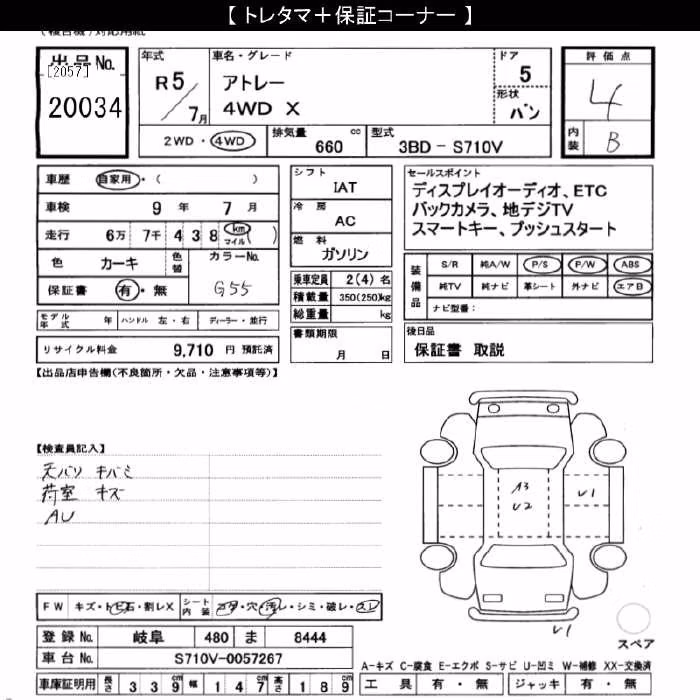 【 トレタマ＋保証コーナー 】
出品No.
[2057]
20034
年式
R5/7月
車名・グレード
アトレー
4WD X
ドア
5
形状
バン
評価点
4
内装
B
2WD・4WD
排気量
660 cc
型式
3BD - S710V
車歴 自家用・( )
車検 9 年 7 月
走行 6万 7千 4 3 8 km マイル ( )
色 カーキ 色替 カラーNo.
保証書 有・無 G55
モデル年式 年 ハンドル 左・右 ディーラー・並行
リサイクル料金 9,710 円 預託済
シフト
IAT
冷房
AC
燃料
ガソリン
乗車定員 2(4) 名
積載量 350(250)kg
総重量 kg
書類期限
月 日
セールスポイント
ディスプレイオーディオ、ETC
バックカメラ、地デジTV
スマートキー、プッシュスタート
装備品
S/R 純A/W P/S P/W ABS
純TV 純ナビ 革シート 外ナビ エアB
ナビ型番：
後日品
保証書 取説
【出品店申告欄(不良箇所・欠品・注意事項等)】
【検査員記入】
天バリ キバミ
荷室 キズ
AU
A3
U2
U1
U1
スペア
FW キズ・トビ石・割レX シート内装 コゲ・穴・汚レ・シミ・破レ・スレ
登録No. 岐阜 480 ま 8444
車台No. S710V-0057267
車庫証明用 長さ 3 3 9 cm 幅 1 4 7 cm 高さ 1 8 9 cm
A-キズ C-腐食 E-エクボ S-サビ U-凹ミ W-補修 XX-交換済
工具 有・無 ジャッキ 有・無